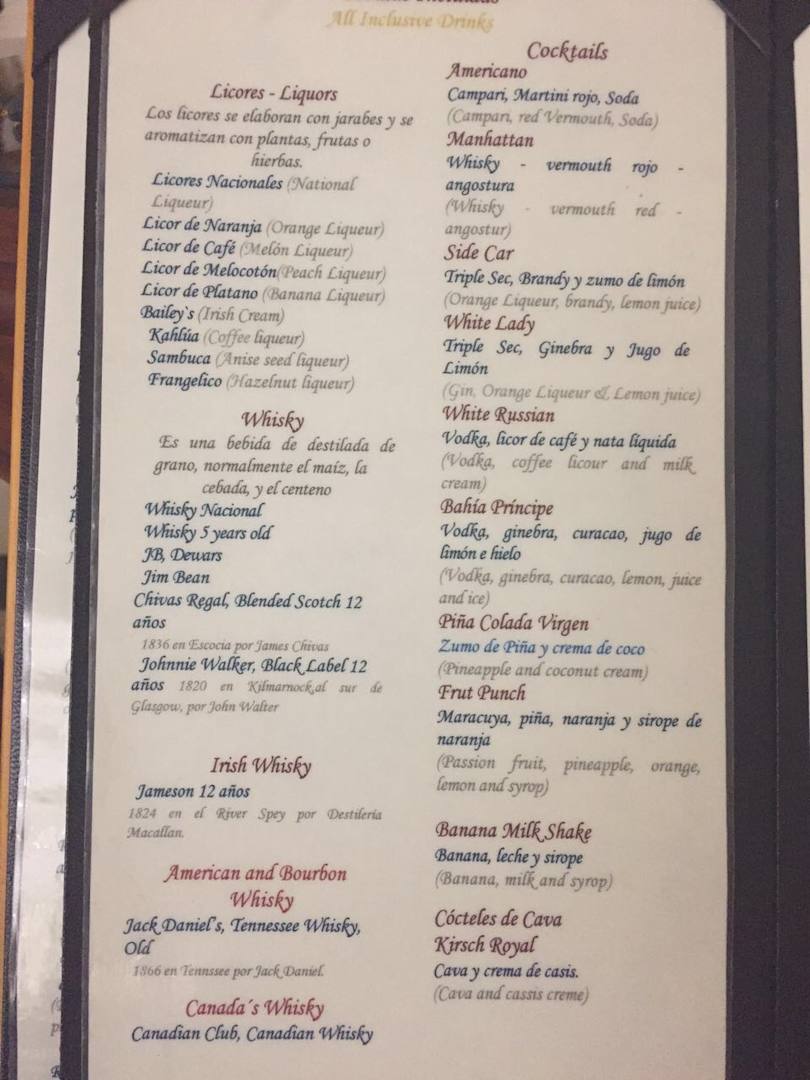 All Inclusive Drinks
Licores - Liquors
Los licores se elaboran con jarabes y se
aromatizan con plantas, frutas o
hierbas.
Licores Nacionales (National
Liqueur)
Licor de Naranja (Orange Liqueur)
Licor de Café (Melón Liqueur)
Licor de Melocotón(Peach Liqueur)
Licor de Platano (Banana Liqueur)
Bailey`s (Irish Cream)
Kahlúa (Coffee liqueur)
Sambuca (Anise seed liqueur)
Frangelico (Hazelnut liqueur)
Whisky
Es una bebida de destilada de
grano, normalmente el maíz, la
cebada, y el centeno
Whisky Nacional
Whisky 5 years old
JB, Dewars
Jim Bean
Chivas Regal, Blended Scotch 12
años
1836 en Escocia por James Chivas
Johnnie Walker, Black Label 12
años 1820 en Kilmarnock,al sur de
Glasgow, por John Walter
Irish Whisky
Jameson 12 años
1824 en el River Spey por Destilería
Macallan.
American and Bourbon
Whisky
Jack Daniel's, Tennessee Whisky,
Old
1866 en Tennssee por Jack Daniel.
Canada´s Whisky
Canadian Club, Canadian Whisky
Cocktails
Americano
Campari, Martini rojo, Soda
(Campari, red Vermouth, Soda)
Manhattan
Whisky - vermouth rojo -
angostura
(Whisky - vermouth red -
angostur)
Side Car
Triple Sec, Brandy y zumo de limón
(Orange Liqueur, brandy, lemon juice)
White Lady
Triple Sec, Ginebra y Jugo de
Limón
(Gin, Orange Liqueur & Lemon juice)
White Russian
Vodka, licor de café y nata líquida
(Vodka, coffee licour and milk
cream)
Bahía Príncipe
Vodka, ginebra, curacao, jugo de
limón e hielo
(Vodka, ginebra, curacao, lemon, juice
and ice)
Piña Colada Virgen
Zumo de Piña y crema de coco
(Pineapple and coconut cream)
Frut Punch
Maracuya, piña, naranja y sirope de
naranja
(Passion fruit, pineapple, orange,
lemon and syrop)
Banana Milk Shake
Banana, leche y sirope
(Banana, milk and syrop)
Cócteles de Cava
Kirsch Royal
Cava y crema de casis.
(Cava and cassis creme)